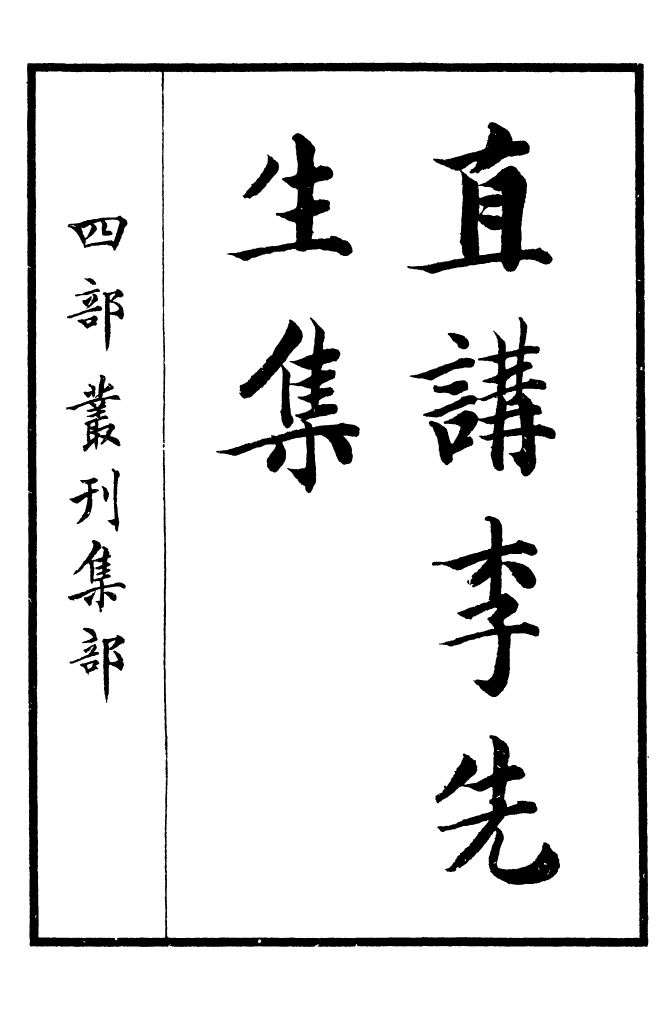 直講李先
生集
四部叢刊集部